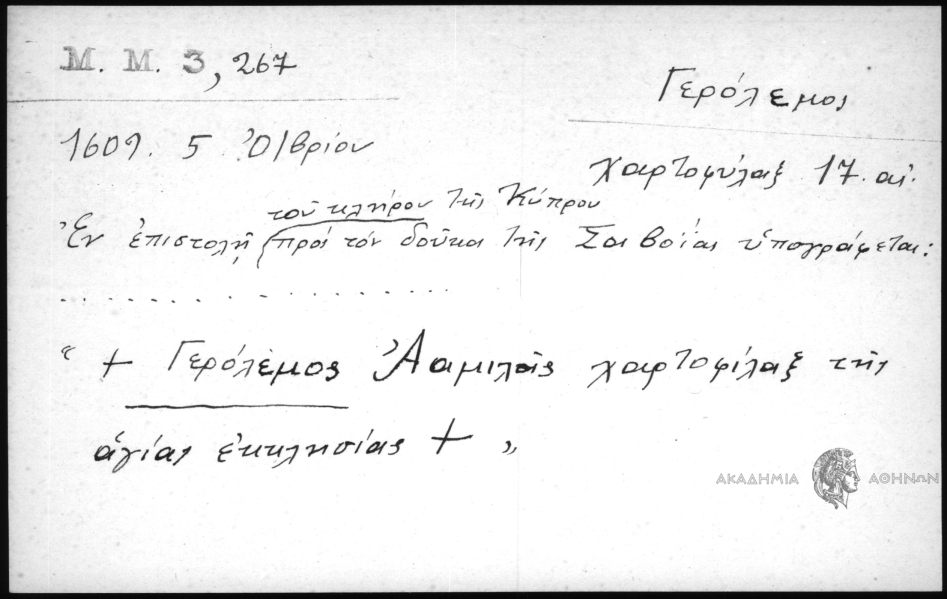 Μ. Μ. 3, 267
Γερόλεμος
1609. 5 Ὀ/βρίου
χαρτοφύλαξ 17. αἰ.
τοῦ κλήρου τῆς Κύπρου
Ἐν ἐπιστολῇ πρὸς τὸν δοῦκα τῆς Σαβοΐας ὑπογράφεται:
. . . . . . . . . . . . . . . . . .
“ + Γερόλεμος Ἀαμιλῆς χαρτοφίλαξ τῆς
ἁγίας ἐκκλησίας + „
ΑΚΑΔΗΜΙΑ ΑΘΗΝΩΝ